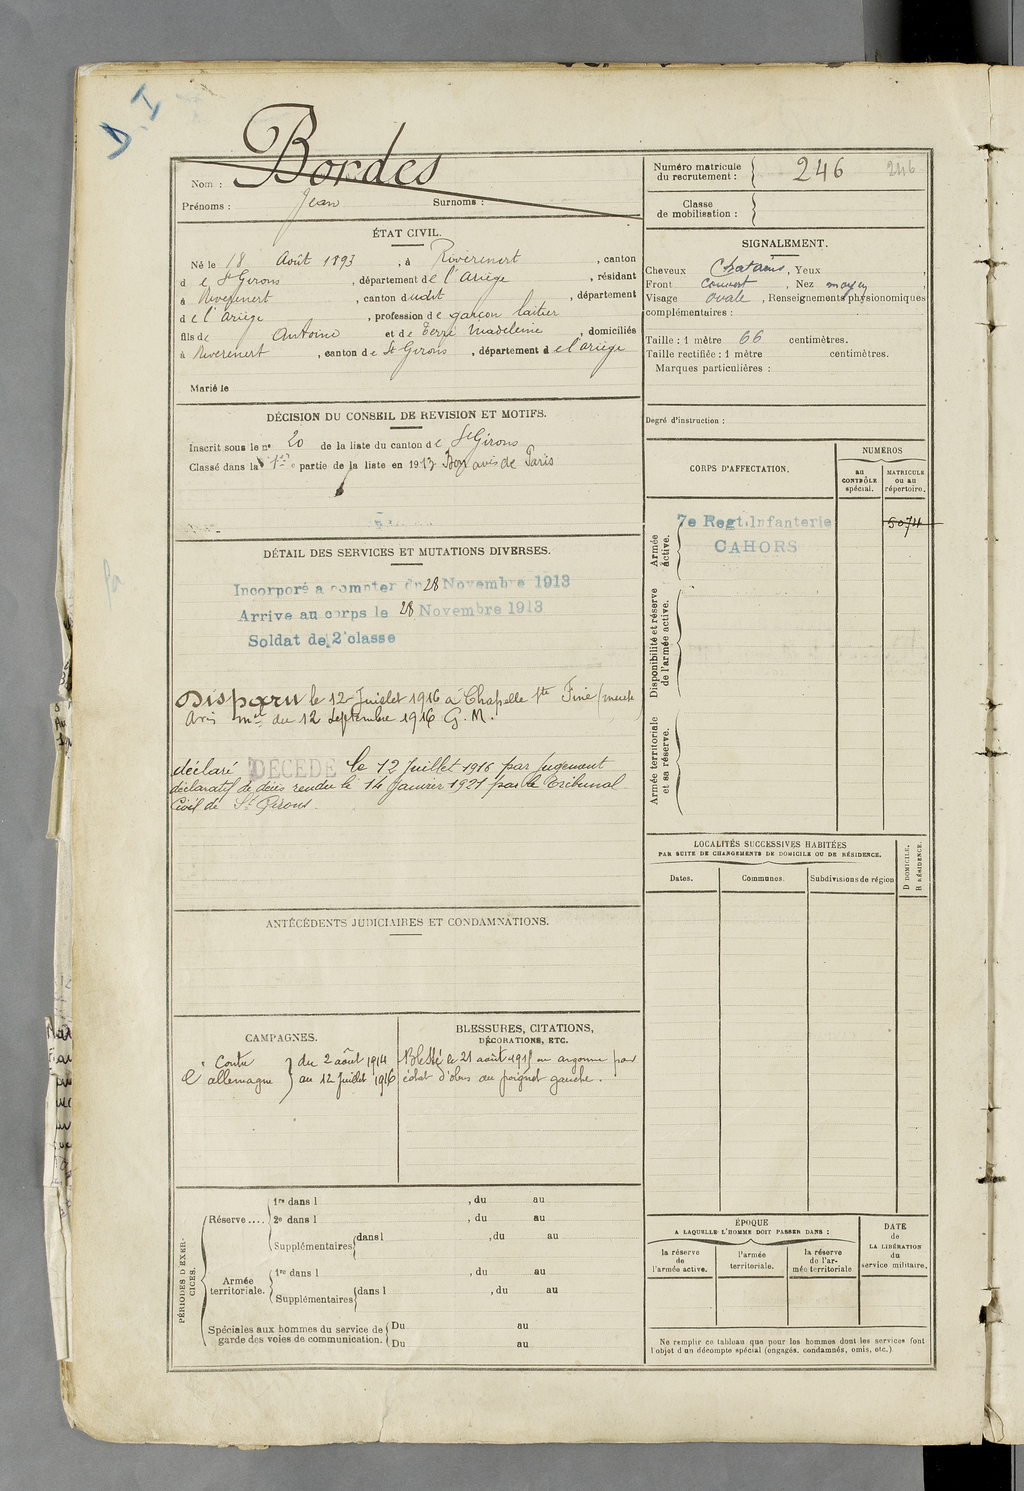 D. I
Nom : Bordes
Prénoms : Jean Surnoms :
ÉTAT CIVIL.
Né le 18 Août 1893, à Riverenert, canton
de St Girons, département de l'Ariège, résidant
à Riverenert, canton dudit, département
de l'Ariège, profession de garçon laitier
fils de Antoine et de Terré Madeleine, domiciliés
à Riverenert, canton de St Girons, département de l'ariège
Marié le
DÉCISION DU CONSEIL DE RÉVISION ET MOTIFS.
Inscrit sous le n° 20 de la liste du canton de St Girons
Classé dans la 1re partie de la liste en 1913 Bon avis de Paris
DÉTAIL DES SERVICES ET MUTATIONS DIVERSES.
Incorporé a compter du 28 Novembre 1913
Arrive au corps le 28 Novembre 1913
Soldat de 2e classe
Disparu le 12 Juillet 1916 à Chapelle Ste Fine (meuse
Avis mel du 12 Septembre 1916 G. M.
déclaré DECEDE le 12 Juillet 1916 par jugement
déclaratif de décès rendu le 14 Janvier 1921 par le Tribunal
Civil de St Girons.
ANTÉCÉDENTS JUDICIAIRES ET CONDAMNATIONS.
CAMPAGNES.
Contre } du 2 août 1914
l'allemagne } au 12 Juillet 1916
BLESSURES, CITATIONS,
DÉCORATIONS, ETC.
Blessé le 21 août 1915 en argonne par
éclat d'obus au poignet gauche.
PÉRIODES D'EXERCICES.
Réserve .... 1re dans l , du au
2e dans l , du au
Supplémentaires dans l , du au
Armée territoriale. 1re dans l , du au
Supplémentaires dans l , du au
Spéciales aux hommes du service de Du au
garde des voies de communication. Du au
Numéro matricule
du recrutement : 246 246
Classe
de mobilisation :
SIGNALEMENT.
Cheveux Chatains, Yeux ,
Front couvert, Nez moyen,
Visage ovale, Renseignements physionomiques
complémentaires :
Taille : 1 mètre 66 centimètres.
Taille rectifiée : 1 mètre centimètres.
Marques particulières :
Degré d'instruction :
CORPS D'AFFECTATION.
NUMÉROS
au CONTRÔLE spécial.
MATRICULE ou au répertoire.
Armée active.
7e Regt. Infanterie
CAHORS
5074
Disponibilité et réserve de l'armée active.
Armée territoriale et sa réserve.
LOCALITÉS SUCCESSIVES HABITÉES
PAR SUITE DE CHANGEMENTS DE DOMICILE OU DE RÉSIDENCE.
Dates. Communes. Subdivisions de région
D DOMICILE.
R RÉSIDENCE.
ÉPOQUE
A LAQUELLE L'HOMME DOIT PASSER DANS :
la réserve de l'armée active.
l'armée territoriale.
la réserve de l'armée territoriale.
DATE de LA LIBÉRATION du service militaire.
Ne remplir ce tableau que pour les hommes dont les services font
l'objet d'un décompte spécial (engagés, condamnés, omis, etc.)